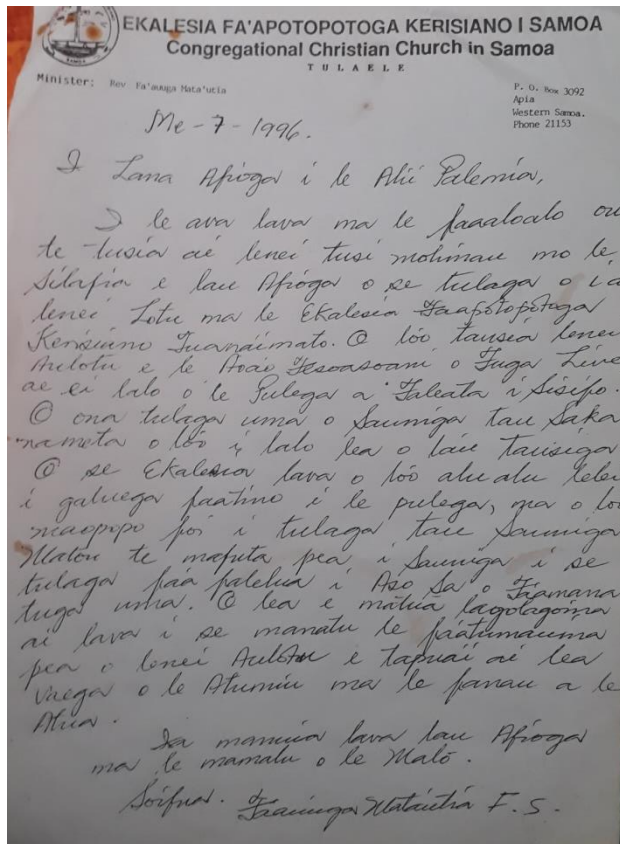 EKALESIA FA'APOTOPOTOGA KERISIANO I SAMOA
Congregational Christian Church in Samoa
TULAELE
Minister: Rev Fa'auuga Mata'utia
P. O. Box 3092
Apia
Western Samoa.
Phone 21153
Me-7-1996.
I Lana Afioga i le Alii Palemia,
I le ava lava ma le faaaloalo ou
te tusia ai lenei tusi molimau mo le
Silafia e lau Afioga o se tulaga o i a
lenei Lotu ma le Ekalesia Faapotopotoga
Kerisiano Tuanaimato. O loo tausia lenei
Aulotu e le Aoao Fesoasoani o Tuga Live
ae ei lalo o le Pulega a Faleata i Sisifo.
O ona tulaga uma o Sauniga tau Saka
nameta o loo i lalo lea o lau Tausiga
O se Ekalesia lava o loo alualu lelei
i galuega faatino i le pulega, ma o loo
maopopo foi i tulaga tau Sauniga
Matou te mafuta pea i Sauniga i se
tulaga faa falelua i Aso Sa o
tuga uma. O lea e mātuā lagolagoina
ai lava i se manatu le faatumauina
pea o lenei Aulotu e tapuai ai lea
vaega o le Atumiu ma le fanau a le
Atua.
Ia manuia lava lau Afioga
ma le mamalu o le Malō.
Soifua. Faauuga Matautia F. S.